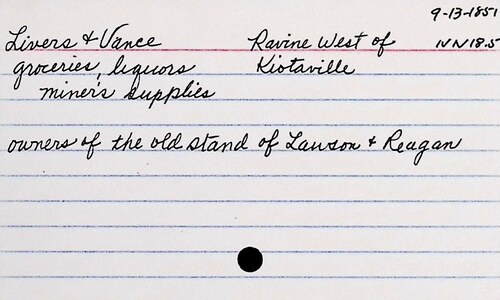 9-13-1851
Livers & Vance Ravine West of NN18.5
groceries, liquors Kiotaville
miner's supplies
owners of the old stand of Lawson & Reagan